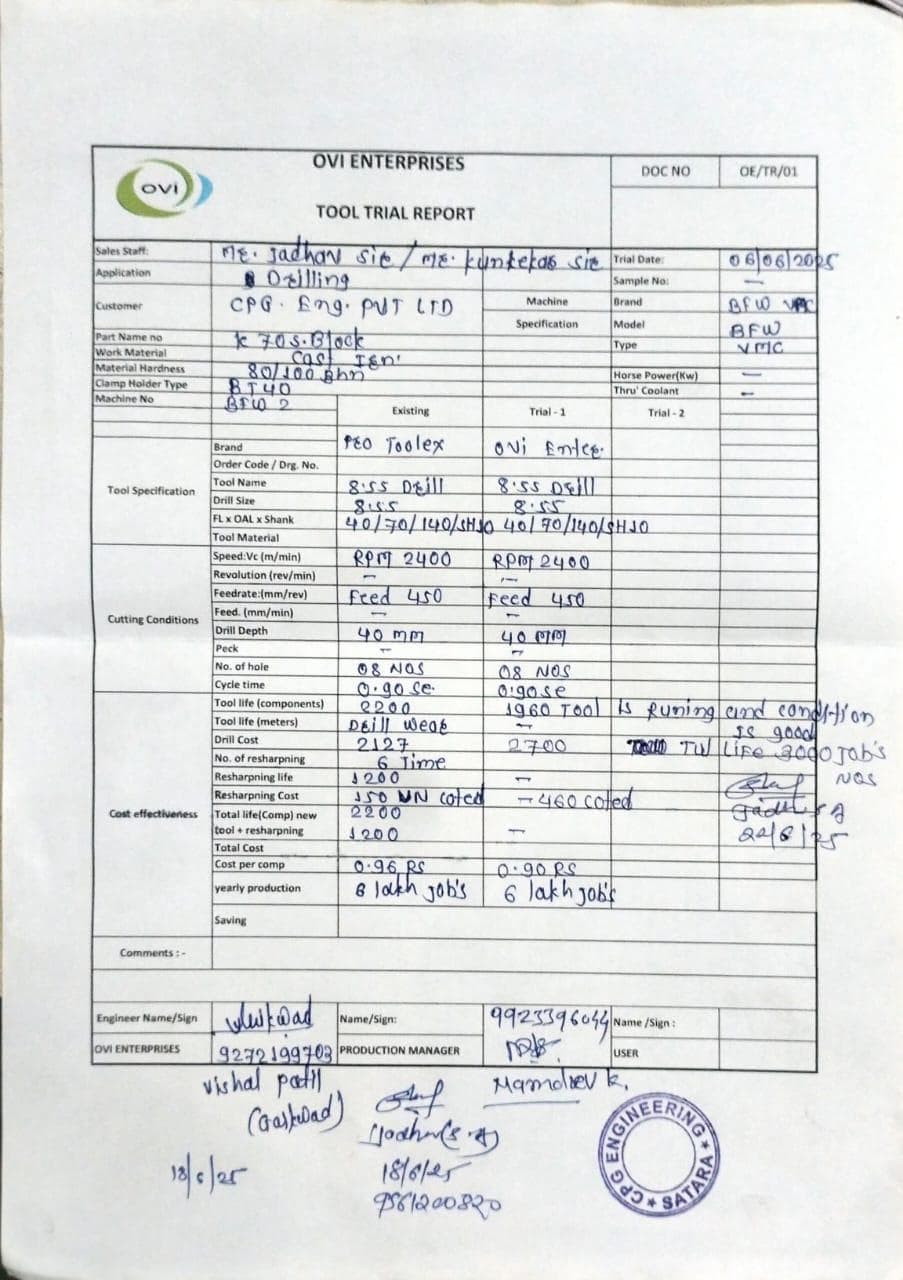 OVI ENTERPRISES
DOC NO OE/TR/01
OVI
TOOL TRIAL REPORT
Sales Staff: Mr. Jadhav Sir / Mr. Kunkekar Sir Trial Date: 06/06/2025
Application Drilling Sample No: —
Customer CPG. Eng. PVT LTD Machine Brand BFW VMC
Specification Model BFW
Part Name no K 70 S.Block Type VMC
Work Material Cast Iron
Material Hardness 80/100 Bhn Horse Power(Kw) —
Clamp Holder Type BT40 Thru' Coolant –
Machine No BFW 2 Existing Trial - 1 Trial - 2
Tool Specification
Brand Toolex OVI Enter.
Order Code / Drg. No.
Tool Name 8.55 Drill 8.55 Drill
Drill Size 8.55 8.55
FL x OAL x Shank 40/70/140/SH10 40/70/140/SH10
Tool Material
Cutting Conditions
Speed:Vc (m/min) RPM 2400 RPM 2400
Revolution (rev/min) – –
Feedrate:(mm/rev) Feed 450 Feed 450
Feed. (mm/min) – –
Drill Depth 40 mm 40 mm
Peck – –
No. of hole 08 NOS 08 NOS
Cycle time 0.90 se. 0.90 se
Cost effectiveness
Tool life (components) 2200 1960 Tool is Runing and condition
is good
Tool life (meters) Drill wear –
Drill Cost 2127 2700 Life 3000 Job's
NOS
No. of resharpning 6 Time
Resharpning life 1200 –
Resharpning Cost 150 UN coted – 460 coted
Total life(Comp) new 2200
tool + resharpning 1200 –
22/6/25
Total Cost
Cost per comp 0.96 RS 0.90 RS
yearly production 6 lakh job's 6 lakh job's
Saving
Comments : -
Engineer Name/Sign Name/Sign: 9923396044 Name /Sign :
OVI ENTERPRISES 9272199703 PRODUCTION MANAGER USER
Vishal Patil Namdev K.
(Gaikwad)
18/6/25 18/6/25
9561200820
CPG ENGINEERING
★ SATARA ★